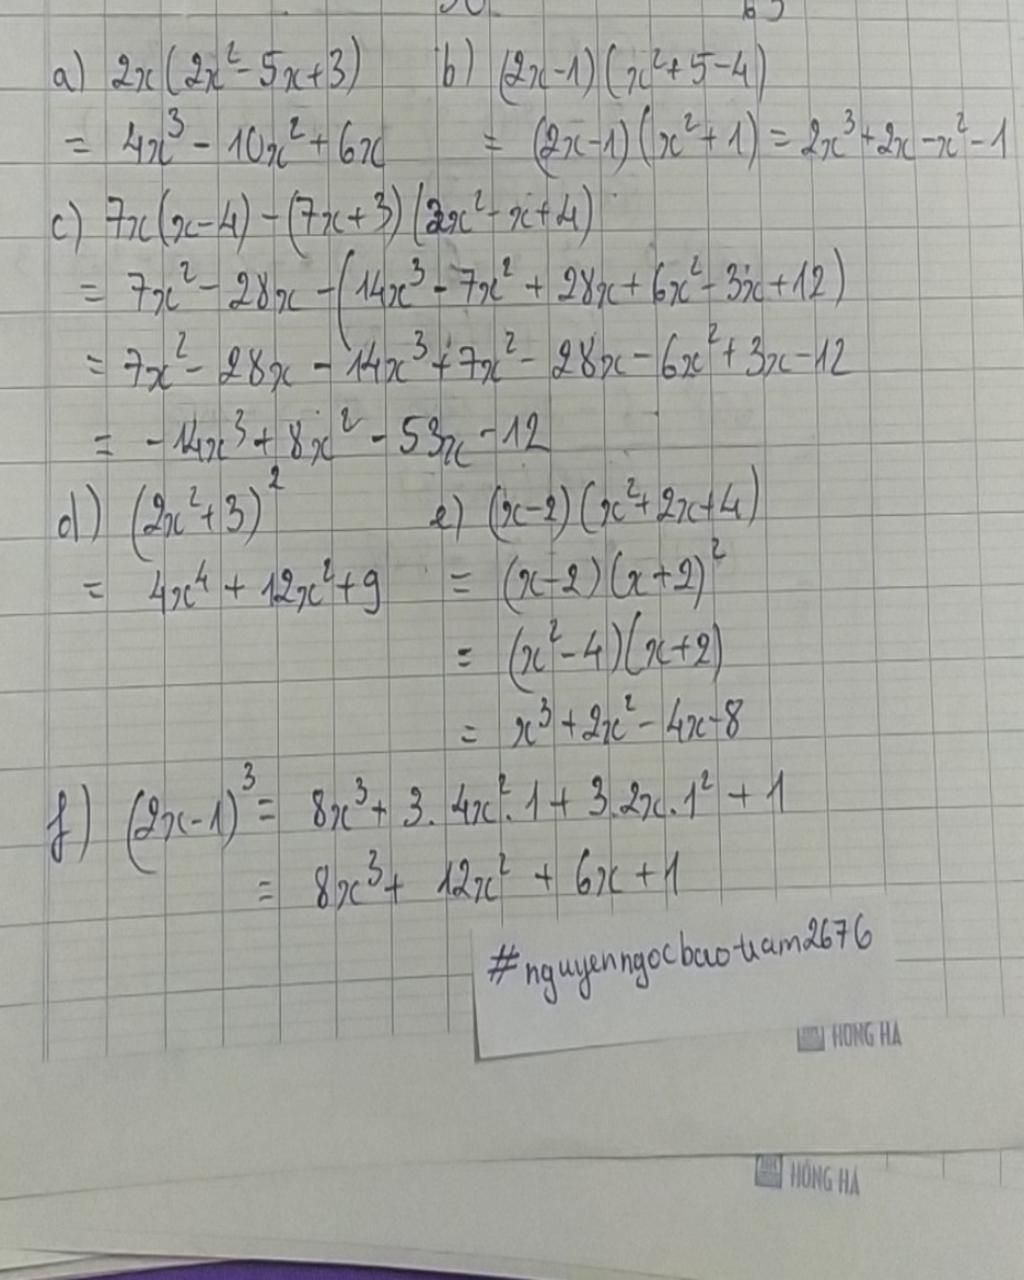 a) 2x(2x² - 5x + 3)    b) (2x - 1)(x² + 5 - 4)
= 4x³ - 10x² + 6x    = (2x - 1)(x² + 1) = 2x³ + 2x - x² - 1
c) 7x(x - 4) - (7x + 3)(2x² - x + 4)
= 7x² - 28x - (14x³ - 7x² + 28x + 6x² - 3x + 12)
= 7x² - 28x - 14x³ + 7x² - 28x - 6x² + 3x - 12
= -14x³ + 8x² - 53x - 12
d) (2x² + 3)²    e) (x - 2)(x² + 2x + 4)
= 4x⁴ + 12x² + 9    = (x - 2)(x + 2)²
= (x² - 4)(x + 2)
= x³ + 2x² - 4x - 8
f) (2x - 1)³ = 8x³ + 3. 4x². 1 + 3. 2x. 1² + 1
= 8x³ + 12x² + 6x + 1
#nguyenngocbaotram2676
HONG HA
HONG HA